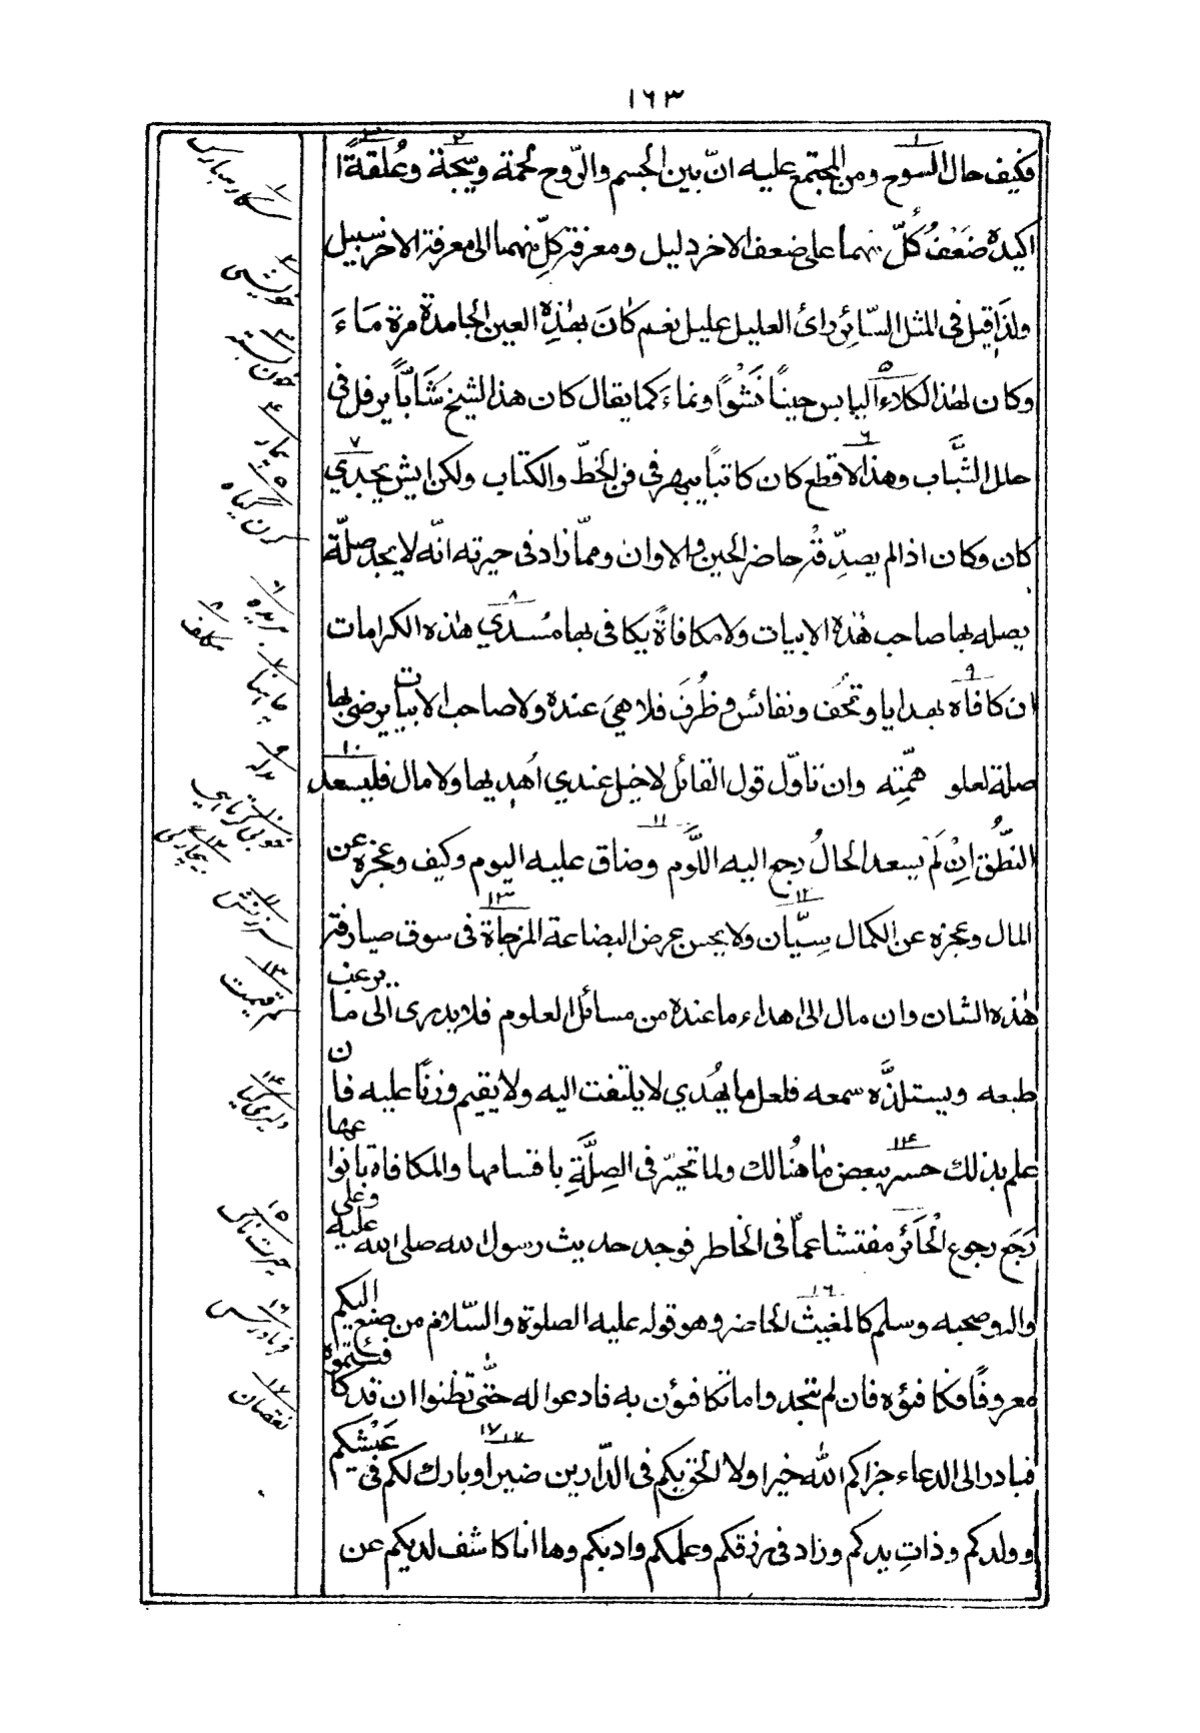 ١٦٣
فكيف حال السوح ومن المجتمع عليه انّ بين الجسم والرّوح لحمة وسجّة وعُلقةً ا
اكيدة ضَعْفُ كُلّ منهما على ضعف الاخر دليل ومعرفة كلِّ منهما الى معرفة الاخر سبيل
ولذا قيل فى المثل السّائر دائ العليل عليل نعم كانَ بهٰذِه العين الجامدة مرة مَاءَ
وكان لهٰذا الكلاء اليابس حيناً نَشْواً ونماءَ كما يقال كان هذا الشيخ شَابّاً يرفل فى
حلل الشَّباب وهذا الاقطع كان كاتباً يبهر فى فن الخطّ والكتاب ولكن ايش يجدي
كان وكان اذا لم يصدِّقْه حاضر الحين والاوان ومما زاد فى حيرته انّه لا يجد صلّة
يصله بها صاحب هٰذه الابيات ولا مكافاةً يكافى بها مُسْدي هٰذه الكرامات
ان كافاه بهدايا وتُحَف ونفائس وظُرَف فلا هيَ عنده ولا صاحب الابيات يرضى بها
صلة لعلو همِّته وان تناوّل قول القائل لا خيل عندي اُهديها ولا مال فليسعد
النُّطق اِنْ لَمْ يسعد الحالُ رجع اليه اللَّوم وضاق عليه اليوم وكيف وعجزه عن
المال وعجزه عن الكمال سِيّان ولا يحسن عرض البضاعة المزجاة فى سوق صيارفة
هٰذه الشان وان مال الى اهداء ما عنده من مسائل العلوم فلا يدرى الى ما يرغب
طبعه ويستلذّه سمعه فلعل ما يُهدي لا يلتفت اليه ولا يقيم وزنًا عليه فان
علم بذلك حسر ببعض ما هُنالك ولما تحيّر فى الصِلَّةِ باقسامها والمكافاة بانواعها
رَجَع رجوع الحَائر مفتشا عمّا فى الخاطر فوجد حديث رسول الله صلى الله عليه وعلى
واله وصحبه وسلم كالمغيث لحاضر وهو قوله عليه الصلوة والسّلام من صنع اليكم
معروفًا فكافئوه فان لم تجدوا ما تكافئون به فادعوا له حتّى تظنوا ان قد كافئتموه
فبادر الى الدعاء جزاكم اللّٰه خيرا ولا الحق بكم فى الدّارين ضيرا وبارك لكم فى عَيْشكم
وولدكم وذاتِ يدكم وزاد فى رزقكم وعلمكم وادبكم وها انا كاشف لديكم عن
٢ خويشى
٤ بيمار
٦ بريده
٨ مكلف
٩ صله
١١ سرزنش
١٢ بيچارگى
١٣ كم قيمت
١٤ دليرى كيا
١٥ حيرت ناك
١٦ فريادرس
١٧ نقصان